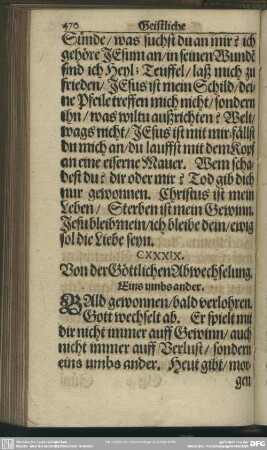 470 Geistliche
Sünde/ was suchst du an mir? ich
gehöre JEsum an/ in seinen Wundē
find ich Heyl: Teuffel/ laß mich zu
frieden/ JEsus ist mein Schild/ dei-
ne Pfeile treffen mich nicht/ sondern
ihn/ was wiltu außrichten? Welt
wags nicht/ JEsus ist mit mir/ fällst
du mich an/ du lauffst mit dem Kopf
an eine eiserne Mauer. Wem scha-
dest du? dir oder mir? Tod gib dich
nur gewonnen. Christus ist mein
Leben/ Sterben ist mein Gewinn.
Jesu bleib mein/ ich bleibe dein/ ewig
sol die Liebe seyn.
CXXXIX.
Von der Göttlichen Abwechselung.
Eins umbs ander.
BAld gewonnen/ bald verlohren.
Gott wechselt ab. Er spielt mit
dir nicht immer auff Gewinn/ auch
nicht immer auff Verlust/ sondern
eins umbs ander. Heut gibt/ mor-
gen